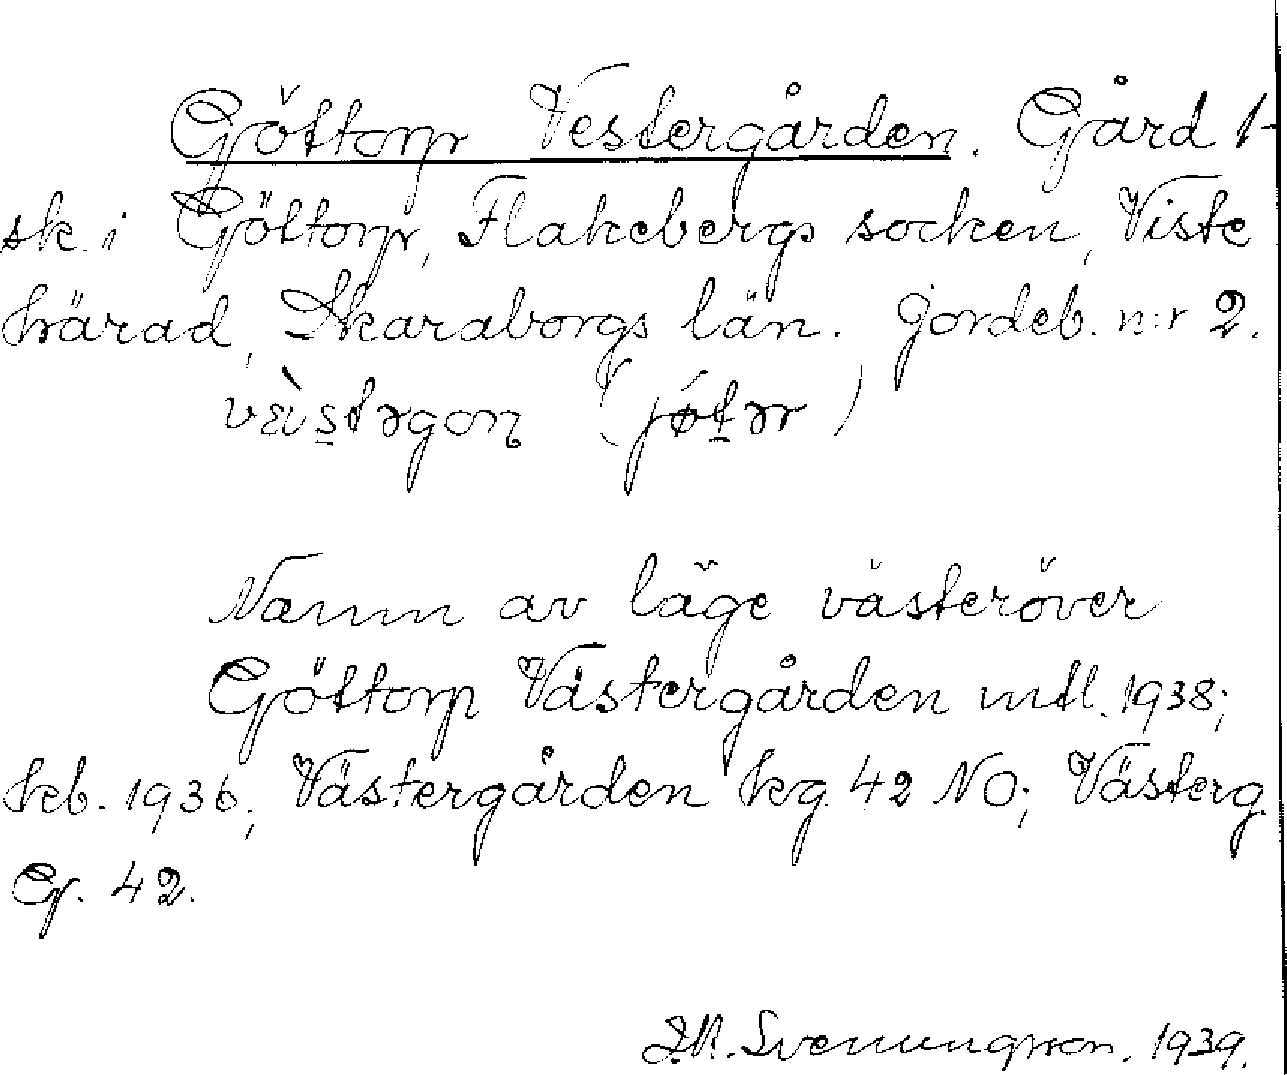 Göttorp Vestergården. Gård 1-
sk. i Göttorp, Flakebergs socken, Viste
härad, Skaraborgs län. Jordeb. n:r 2.
Namn av läge västeröver
Göttorp Västergården mtl. 1938;
kb. 1936; Västergården kg. 42 NO; Västerg.
G. 42.
Svenungsson. 1939.